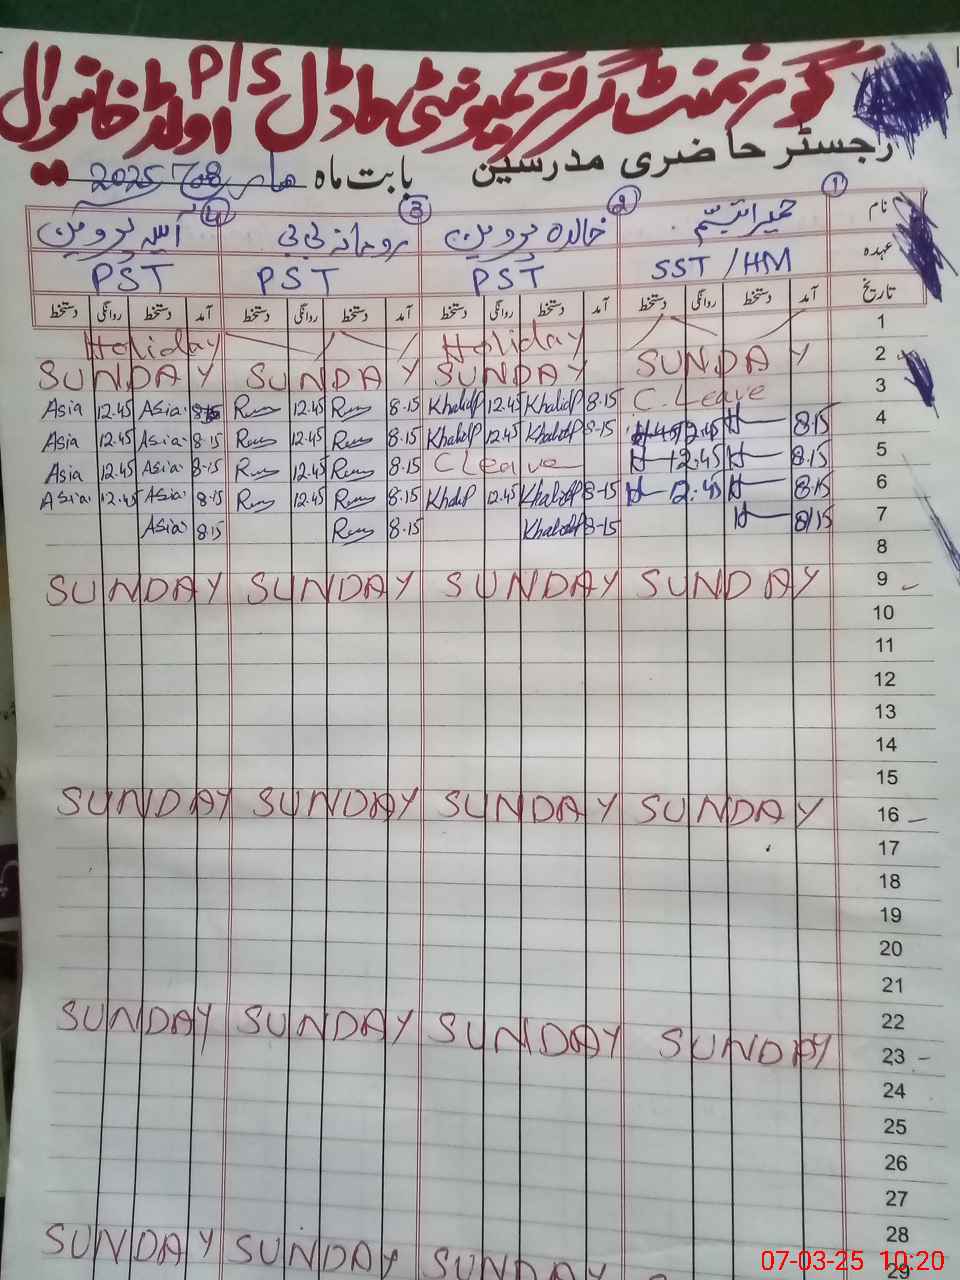 گورنمنٹ گرلز کمیونٹی ماڈل P/S اولڈ خانیوال
رجسٹر حاضری مدرسین بابت ماہ مارچ 2025
نام ① حمیرا تبسم ② خالدہ پروین ③ رومانہ بی بی ④ آسیہ پروین
عہدہ SST / HM PST PST PST
تاریخ آمد دستخط روانگی دستخط آمد دستخط روانگی دستخط آمد دستخط روانگی دستخط آمد دستخط روانگی دستخط
1 Holiday Holiday
2 SUNDAY SUNDAY SUNDAY SUNDAY
3 C. Leave 8-15 Khalida 12.45 Khalida 8-15 Rum 12.45 Rum Asia 12.45 Asia
4 8.15 H 12.45 8-15 Khalida 12.45 Khalida 8.15 Rum 12.45 Rum 8-15 Asia 12.45 Asia
5 8.15 H 12.45 H C Leave 8.15 Rum 12.45 Rum 8-15 Asia 12.45 Asia
6 8.15 H 12.45 H 8-15 Khalida 12.45 Khalida 8.15 Rum 12.45 Rum 8.15 Asia 12.45 Asia
7 8.15 H 8-15 Khalida 8-15 Rum 8.15 Asia
8
9 SUNDAY SUNDAY SUNDAY SUNDAY
10
11
12
13
14
15
16 SUNDAY SUNDAY SUNDAY SUNDAY
17
18
19
20
21
22
23 SUNDAY SUNDAY SUNDAY SUNDAY
24
25
26
27
28
29 SUNDAY SUNDAY SUNDAY
07-03-25 10:20